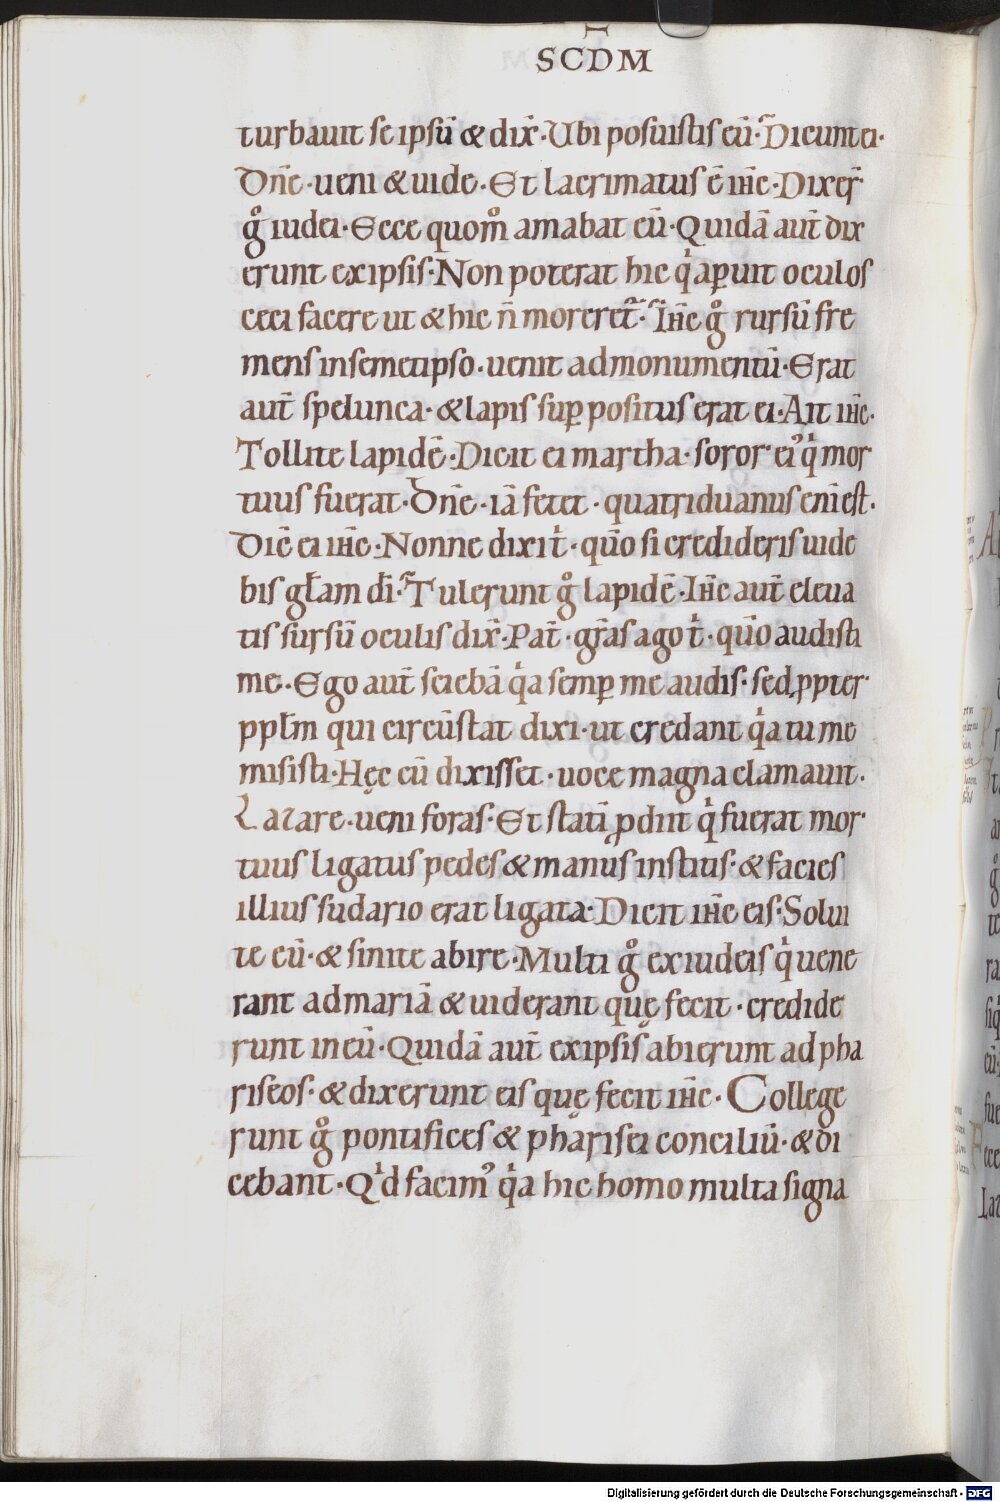 SCD̅M
turbauit se ipsū & dix̄. Ubi posuistis eū. Dicunt ei.
Dn̄e. ueni & uide. Et lacrimatus ē ih̄c. Dixer̄
gͦ iudei. Ecce quom̊ amabat eū. Quidā aut̄ dix
erunt ex ipsis. Non poterat hic qͥ aꝑuit oculos
ceci facere ut & hic n̄ moreret᷑. Ih̄c gͦ rursū fre
mens in semetipso. uenit ad monumentū. Erat
aut̄ spelunca. & lapis suꝑpositus erat ei. Ait ih̄c.
Tollite lapidē. Dicit ei martha. soror ei᾿ qͥ mor
tuus fuerat. Dn̄e. iā fetet. quatriduanus eni ē̄st.
Dic̄ ei ih̄c. Nonne dixi tͥ. qūo si credideris uide
bis gl̄am dī. Tulerunt gͦ lapidē. Ih̄c aut̄ eleua
tis sursū oculis dix̄. Pat̄. gr̄as ago tͥ. qūo audisti
me. Ego aut̄ sciebā qͥa semꝑ me audis. sed ꝓpter
ppl̄m qui circūstat dixi. ut credant qͥa tu me
misisti. Hęc cū dixisset. uoce magna clamauit.
Lazare. ueni foras. Et statī ꝓdiit qͥ fuerat mor
tuus ligatus pedes & manus institis. & facies
illius sudario erat ligata. Dicit ih̄c eis. Solui
te eū. & sinite abire. Multi gͦ ex iudeis qͥ uene
rant ad mariā & uiderant quę fecit. credide
runt in eū. Quidā aut̄ ex ipsis abierunt ad pha
riseos. & dixerunt eis quę fecit ih̄c. College
runt gͦ pontifices & pharisei conciliū. & di
cebant. Qͥd facim᾿ qͥa hic homo multa signa
Digitalisierung gefördert durch die Deutsche Forschungsgemeinschaft - DFG